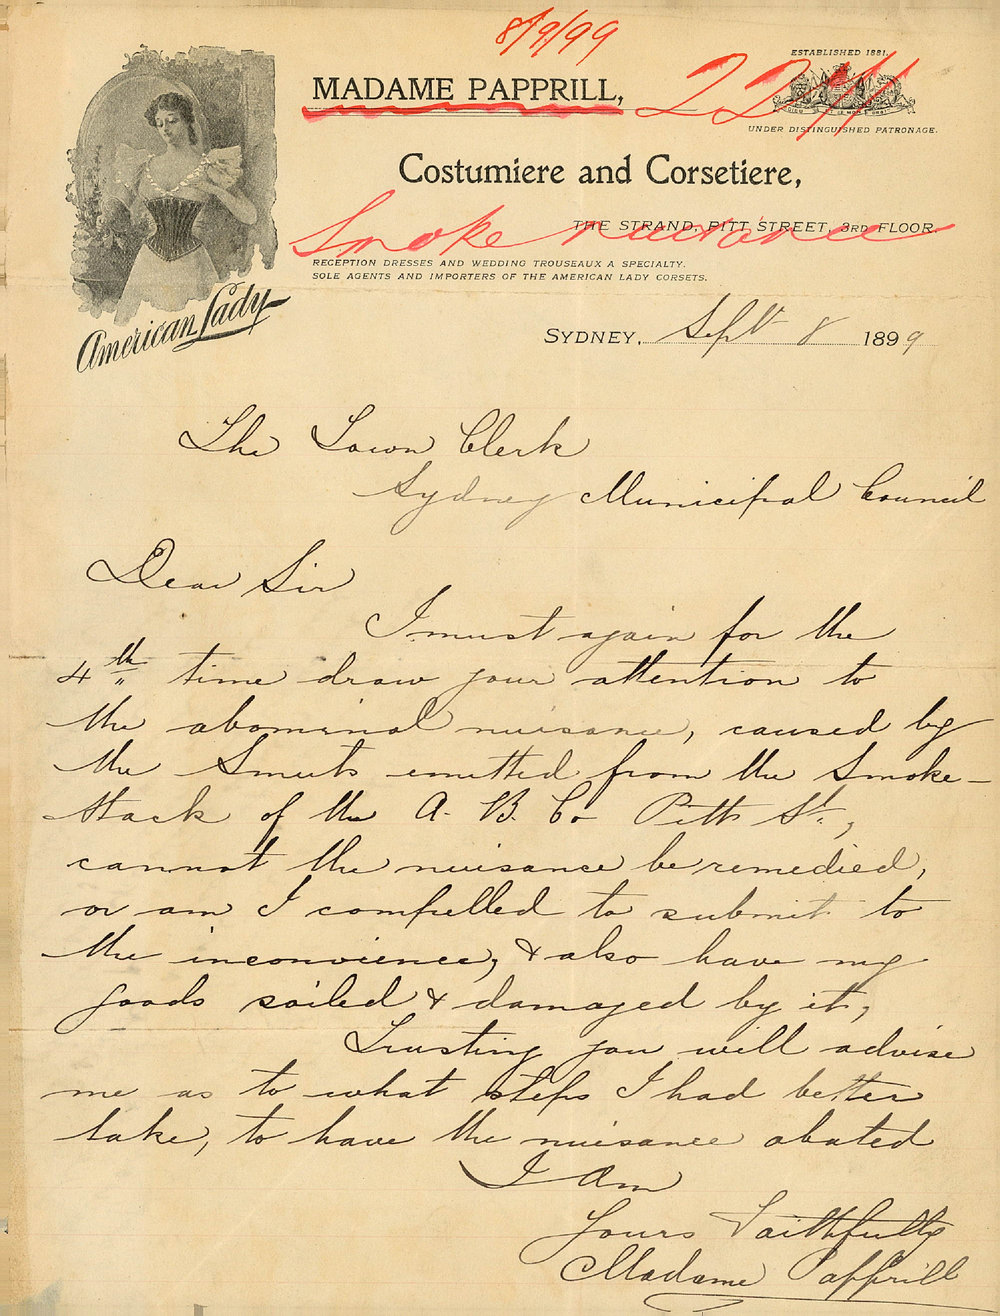 8/9/99
ESTABLISHED 1881.
MADAME PAPPRILL,
UNDER DISTINGUISHED PATRONAGE.
Costumiere and Corsetiere,
Smoke nuisance
THE STRAND, PITT STREET, 3RD FLOOR.
RECEPTION DRESSES AND WEDDING TROUSEAUX A SPECIALTY.
SOLE AGENTS AND IMPORTERS OF THE AMERICAN LADY CORSETS.
American Lady
SYDNEY, Sept 8 1899
The Town Clerk
Sydney Municipal Council
Dear Sir
I must again for the
4th time draw your attention to
the abominal nuisance, caused by
the Smuts emitted from the Smoke-
stack of the A. B. Co Pitt St.,
cannot the nuisance be remedied,
or am I compelled to submit to
the inconvience, & also have my
goods soiled & damaged by it,
Trusting you will advise
me as to what steps I had better
take, to have the nuisance abated
I Am
Yours Faithfully
Madame Papprill